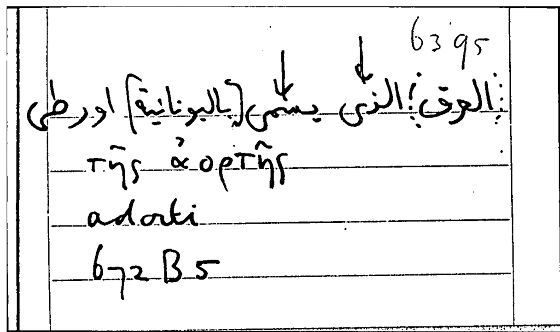 63 95
العرق الذى يسمى [باليونانية] اورطى
τῆς ἀορτῆς
adorti
672 B 5